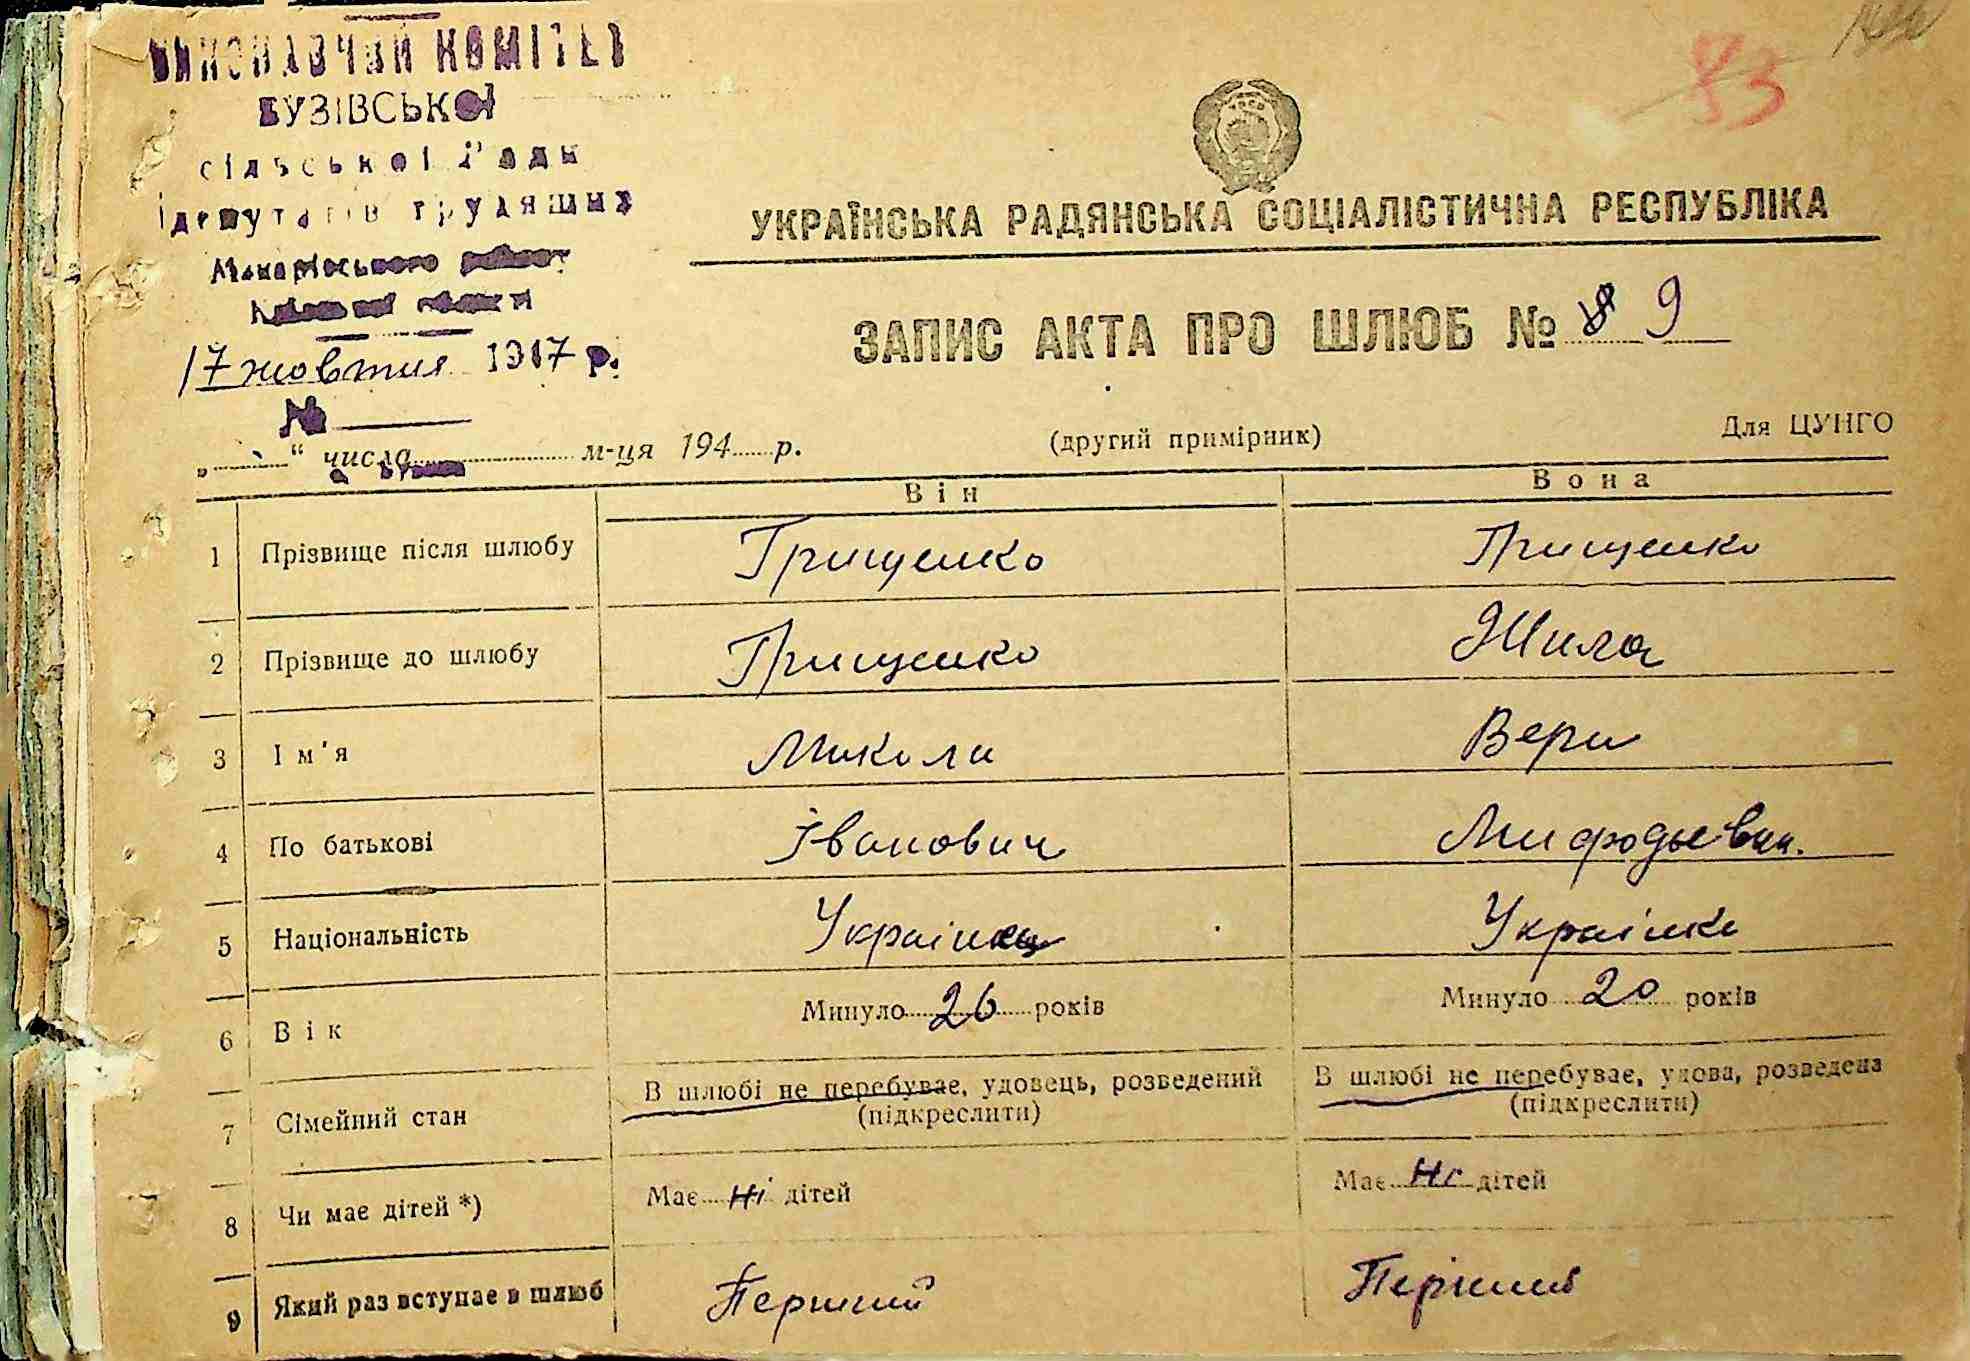 ВИКОНАВЧИЙ КОМІТЕТ
БУЗІВСЬКОЇ
сільської Ради
депутатів трудящих
Макарівського району
Київської області
17 жовтня 1947 р.
№
83
УКРАЇНСЬКА РАДЯНСЬКА СОЦІАЛІСТИЧНА РЕСПУБЛІКА
ЗАПИС АКТА ПРО ШЛЮБ № 9
„ “ числа м-ця 194 р.
(другий примірник)
Для ЦУНГО
Він Вона
1 Прізвище після шлюбу Грищенко Грищенко
2 Прізвище до шлюбу Грищенко Жила
3 Ім'я Микола Вера
4 По батькові Іванович Мифодьевна.
5 Національність Українец Українка
6 Вік Минуло 26 років Минуло 20 років
7 Сімейний стан В шлюбі не перебуває, удовець, розведений (підкреслити) В шлюбі не перебуває, удова, розведена (підкреслити)
8 Чи має дітей *) Має ні дітей Має ні дітей
9 Який раз вступає в шлюб Перший Перший